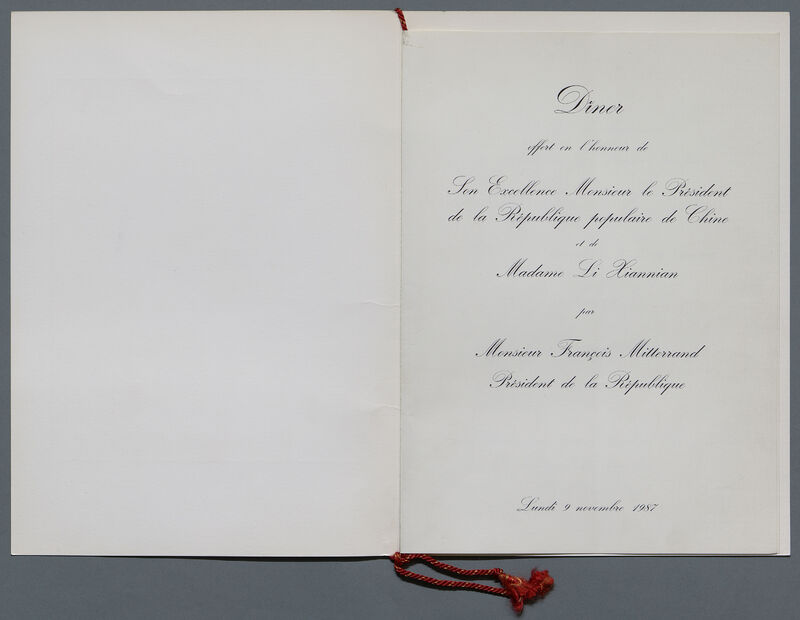 Dîner
offert en l'honneur de
Son Excellence Monsieur le Président
de la République populaire de Chine
et de
Madame Li Xiannian
par
Monsieur François Mitterrand
Président de la République
Lundi 9 novembre 1987